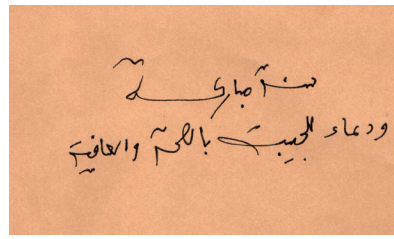 سنة مباركة
ودعاء للجميع بالصحة والعافية